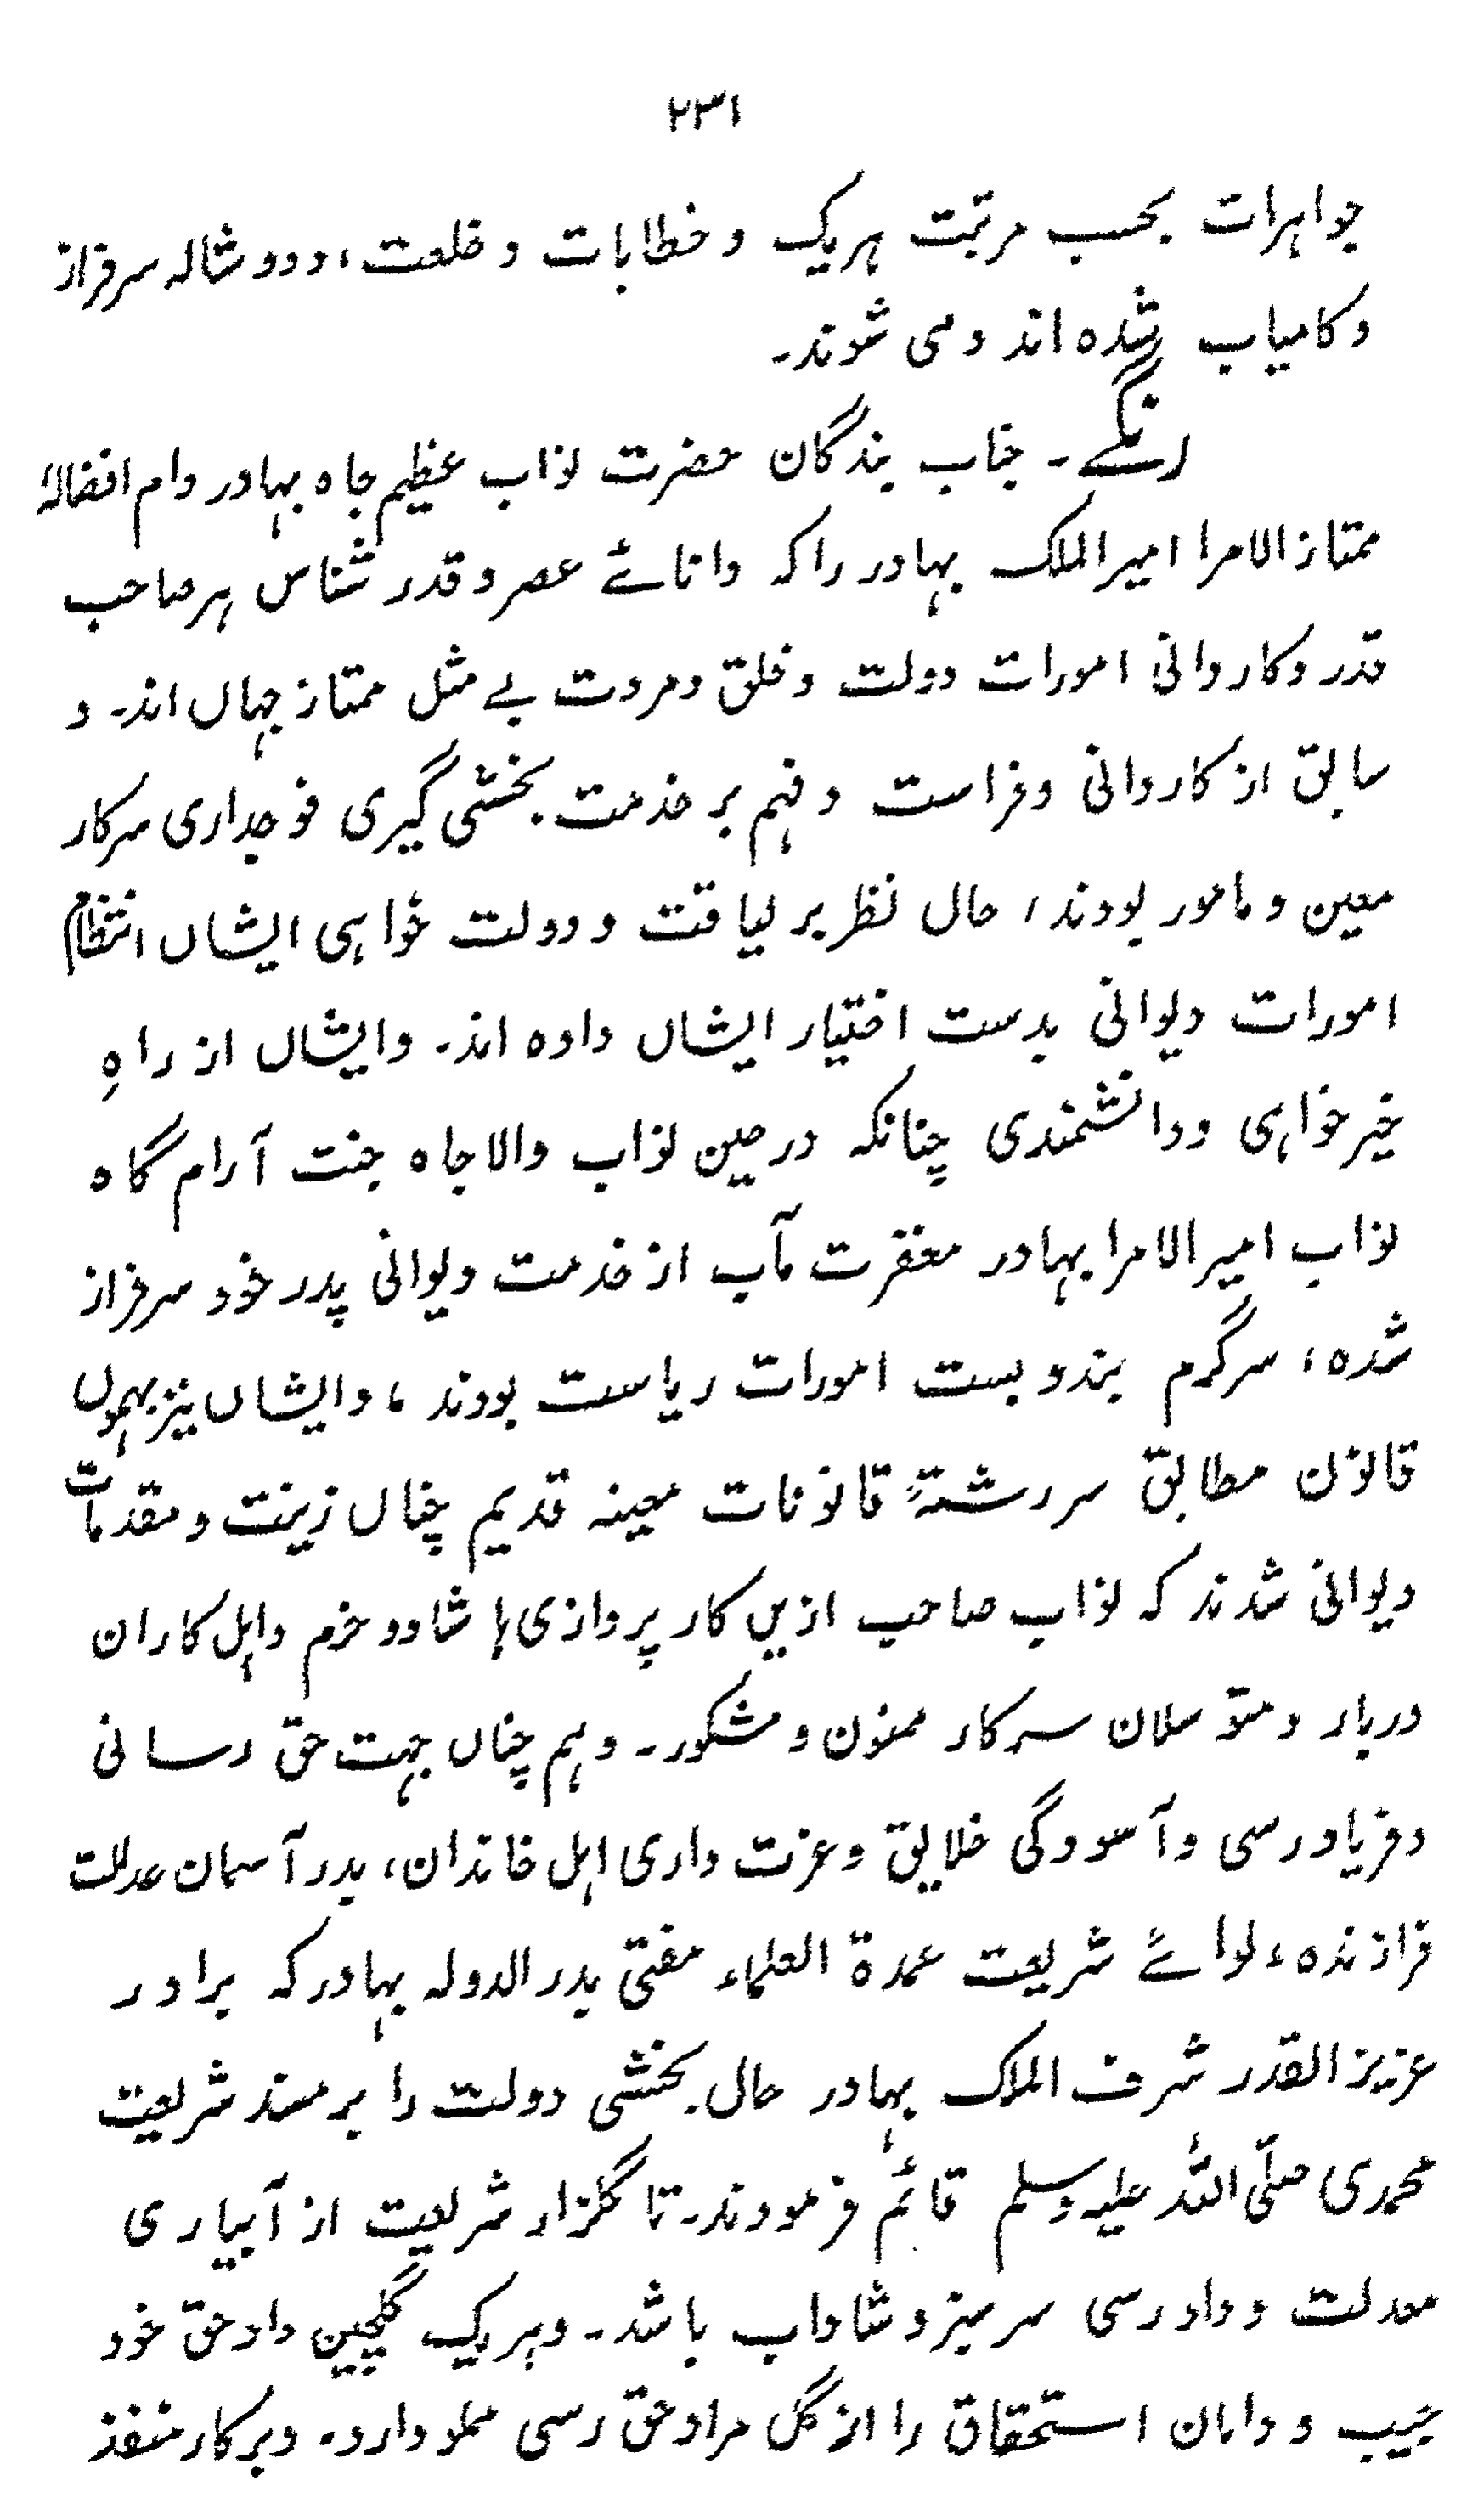 ۲۳۱
جواہرات بحسب مرتبت ہریک و خطابات و خلعت، و دوشالہ سرفراز
و کامیاب شدہ اند و می شوند۔
رنگے۔ جناب بندگان حضرت نواب عظیم جاہ بہادر دام افضالہٗ
ممتاز الامرا امیر الملک بہادر را کہ دانائے عصر و قدر شناس ہر صاحب
قدر و کاردانی امورات دولت و خلق و مروت بے مثل ممتاز جہاں اند۔ و
سابق از کاردانی و فراست و فہم بر خدمت بخشی گیری فوجداری سرکار
معین و مامور بودند، حال نظر بر لیاقت و دولت خواہی ایشاں انتظام
امورات دیوانی بدست اختیار ایشاں دادہ اند۔ و ایشاں از راہِ
خیر خواہی و دانشمندی چنانکہ در حین نواب والاجاہ جنت آرام گاہ
نواب امیر الامرا بہادر مغفرت مآب از خدمت دیوانی پدر خود سرفراز
شدہ، سرگرم بندوبست امورات ریاست بودند، و ایشاں نیز بہموں
قانون مطابق سررشتۂ قانونات معینہ قدیم چناں زینت و مقدمات
دیوانی شدند کہ نواب صاحب ازیں کارپردازی ہا شاد و خرم و اہل کاران
دربار و متوسلان سرکار ممنون و مشکور۔ و ہم چناں جہت حق رسانی
و فریاد رسی و آسودگی خلایق و عزت داری اہل خاندان، بدر آسمان عدالت
فرازندہ ء لوائے شریعت عمدۃ العلماء مفتی بدر الدولہ بہادر کہ برادر
عزیز القدر شرف الملک بہادر حال بخشی دولت را بر مسند شریعت
محمدی صلّی اللّٰہ علیہ وسلم قائم فرمودند۔ تا گلزار شریعت از آبیاری
معدلت و دادرسی سرسبز و شاداب باشد۔ و ہریک گلچین داد حق خود
جیب و دامان استحقاق را از گل مراد حق رسی مملو دارد۔ و بر کار منفذ